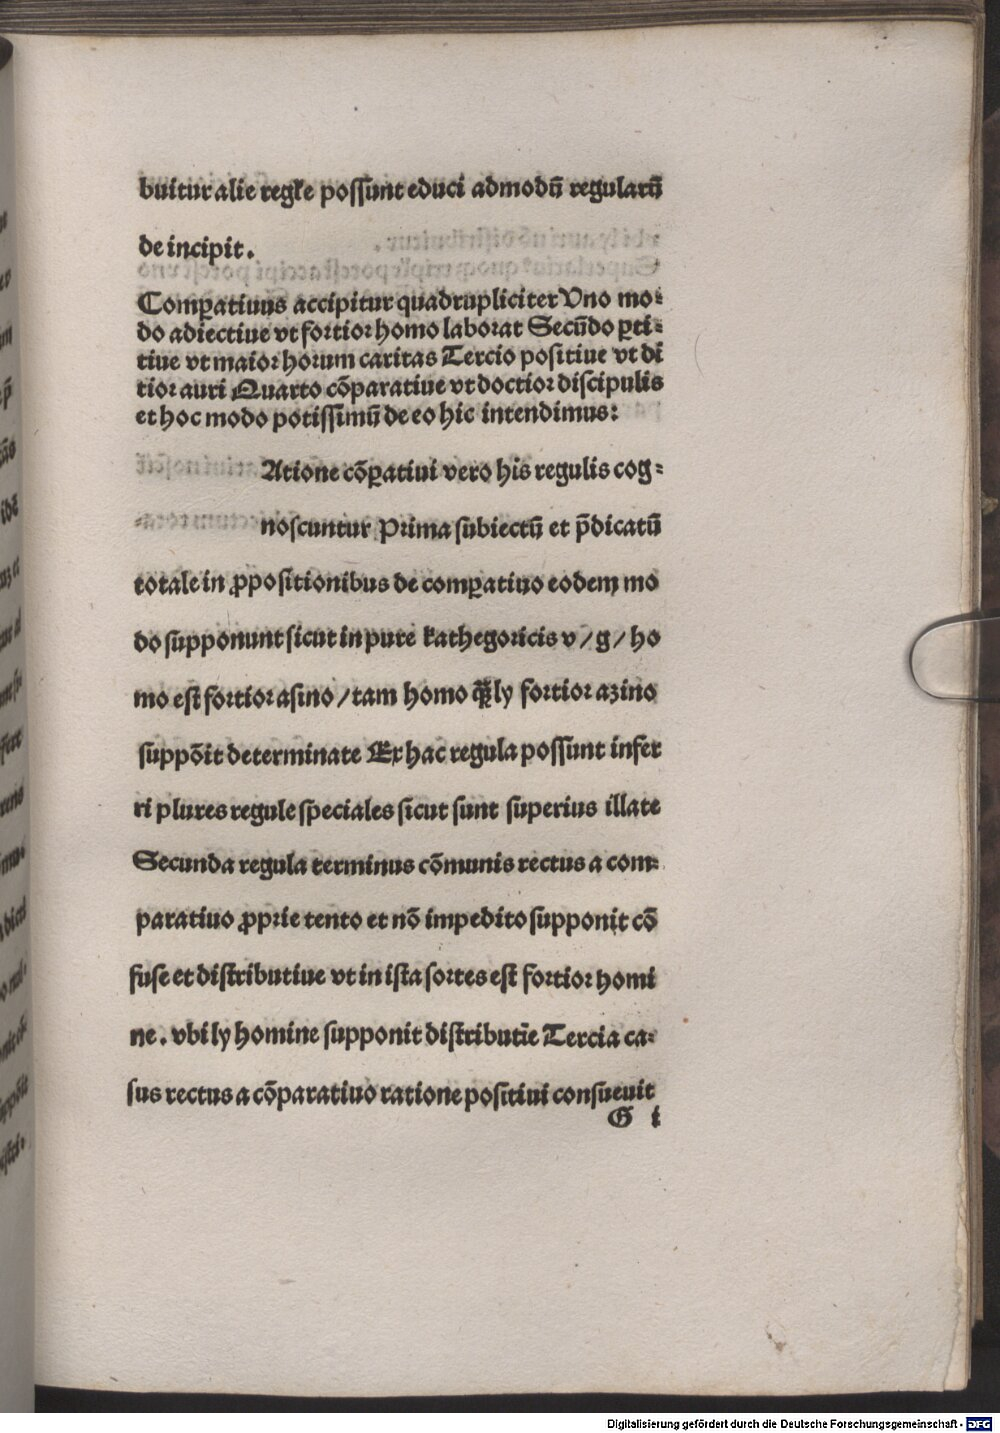 buitur alie regl̄e possunt educi admodū regularū
de incipit.
Comꝑatiuus accipitur quadrupliciter Uno mo⸗
do adiectiue vt fortior homo laborat Secūdo ꝑti⸗
tiue vt maior horum caritas Tercio positiue vt di
tior auri Quarto cōparatiue vt doctior discipulis
et hoc modo potissimū de eo hic intendimus:
Atione cōꝑatiui vero his regulis cog⸗
noscuntur Prima subiectū et p̄dicatū
totale in ꝓpositionibus de comꝑatiuo eodem mo
do supponunt sicut in pure kathegoricis v/g/ho
mo est fortior asino/tam homo ly fortior azino
suppōit determinate Ex hac regula possunt infer
ri plures regule speciales sicut sunt superius illate
Secunda regula terminus cōmunis rectus a com⸗
paratiuo ꝓprie tento et nō impedito supponit cō
fuse et distributiue vt in ista sortes est fortior homi
ne. vbi ly homine supponit distributīe Tercia ca⸗
sus rectus a cōparatiuo ratione positiui consueuit
G i
Digitalisierung gefördert durch die Deutsche Forschungsgemeinschaft - DFG